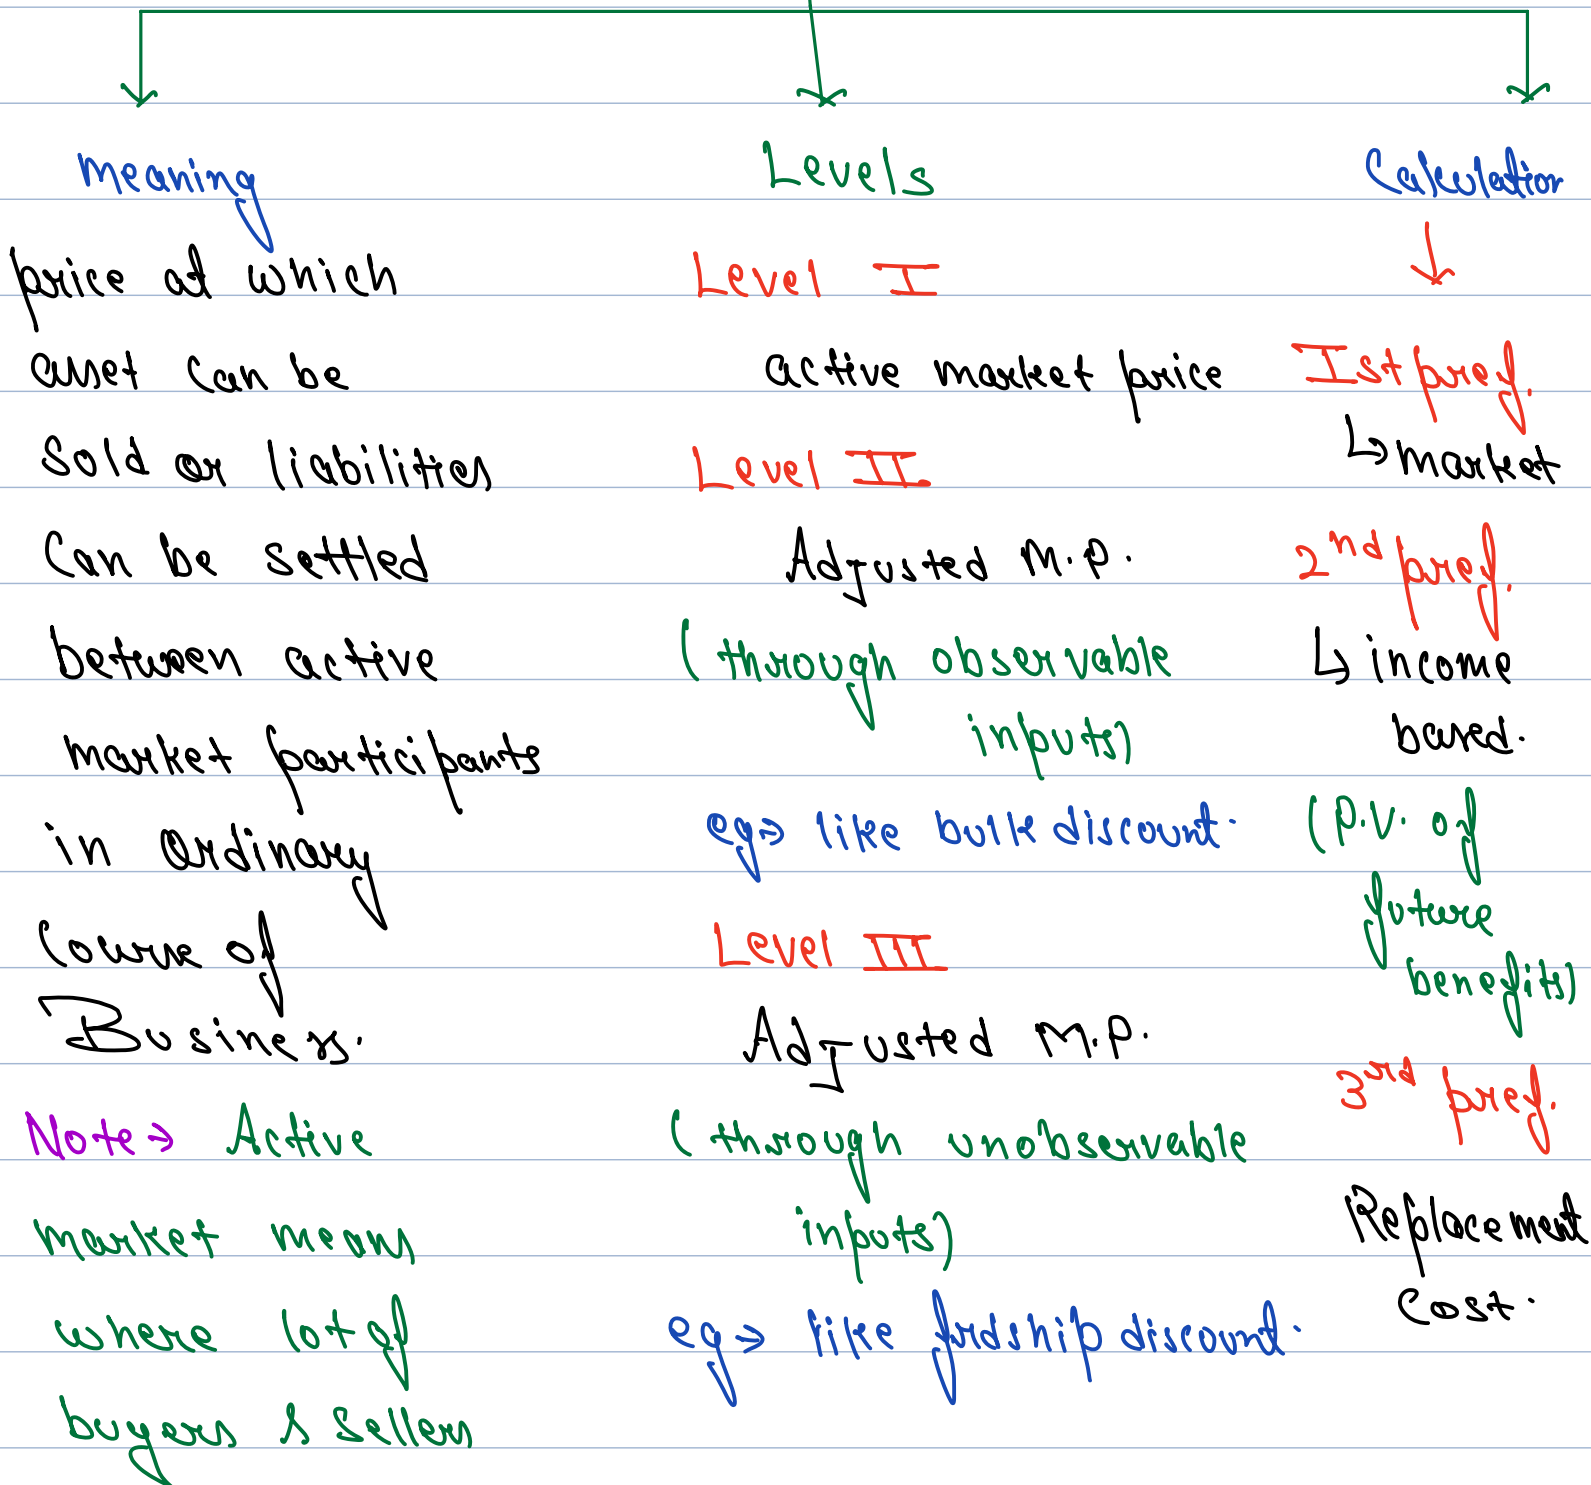 meaning
price at which
asset can be
sold or liabilities
can be settled
between active
market participants
in ordinary
course of
Business.
Note→ Active
market means
where lot of
buyers & sellers
Levels
Level I
active market price
Level II
Adjusted M.P.
(through observable
inputs)
eg→ like bulk discount.
Level III
Adjusted M.P.
(through unobservable
inputs)
eg→ like frdship discount.
Calculation
Ist pref.
↳ market
2nd pref.
↳ income
based.
(P.V. of
future
benefits)
3rd pref.
Replacement
Cost.